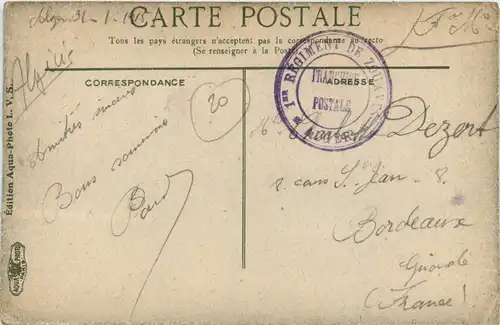 Alger 31-1-
CARTE POSTALE
Tous les pays étrangers n'acceptent pas la correspondance au recto
(Se renseigner à la Poste)
F. M.
Algérie
CORRESPONDANCE
ADRESSE
1ER RÉGIMENT DE ZOUAVES
FRANCHISE
POSTALE
20
Amitiés sincères
Bons souvenirs
Dezert
St Jean
Bordeaux
Gironde
(France)
Edition Aqua-Photo L. V. S.
AQUA PHOTO